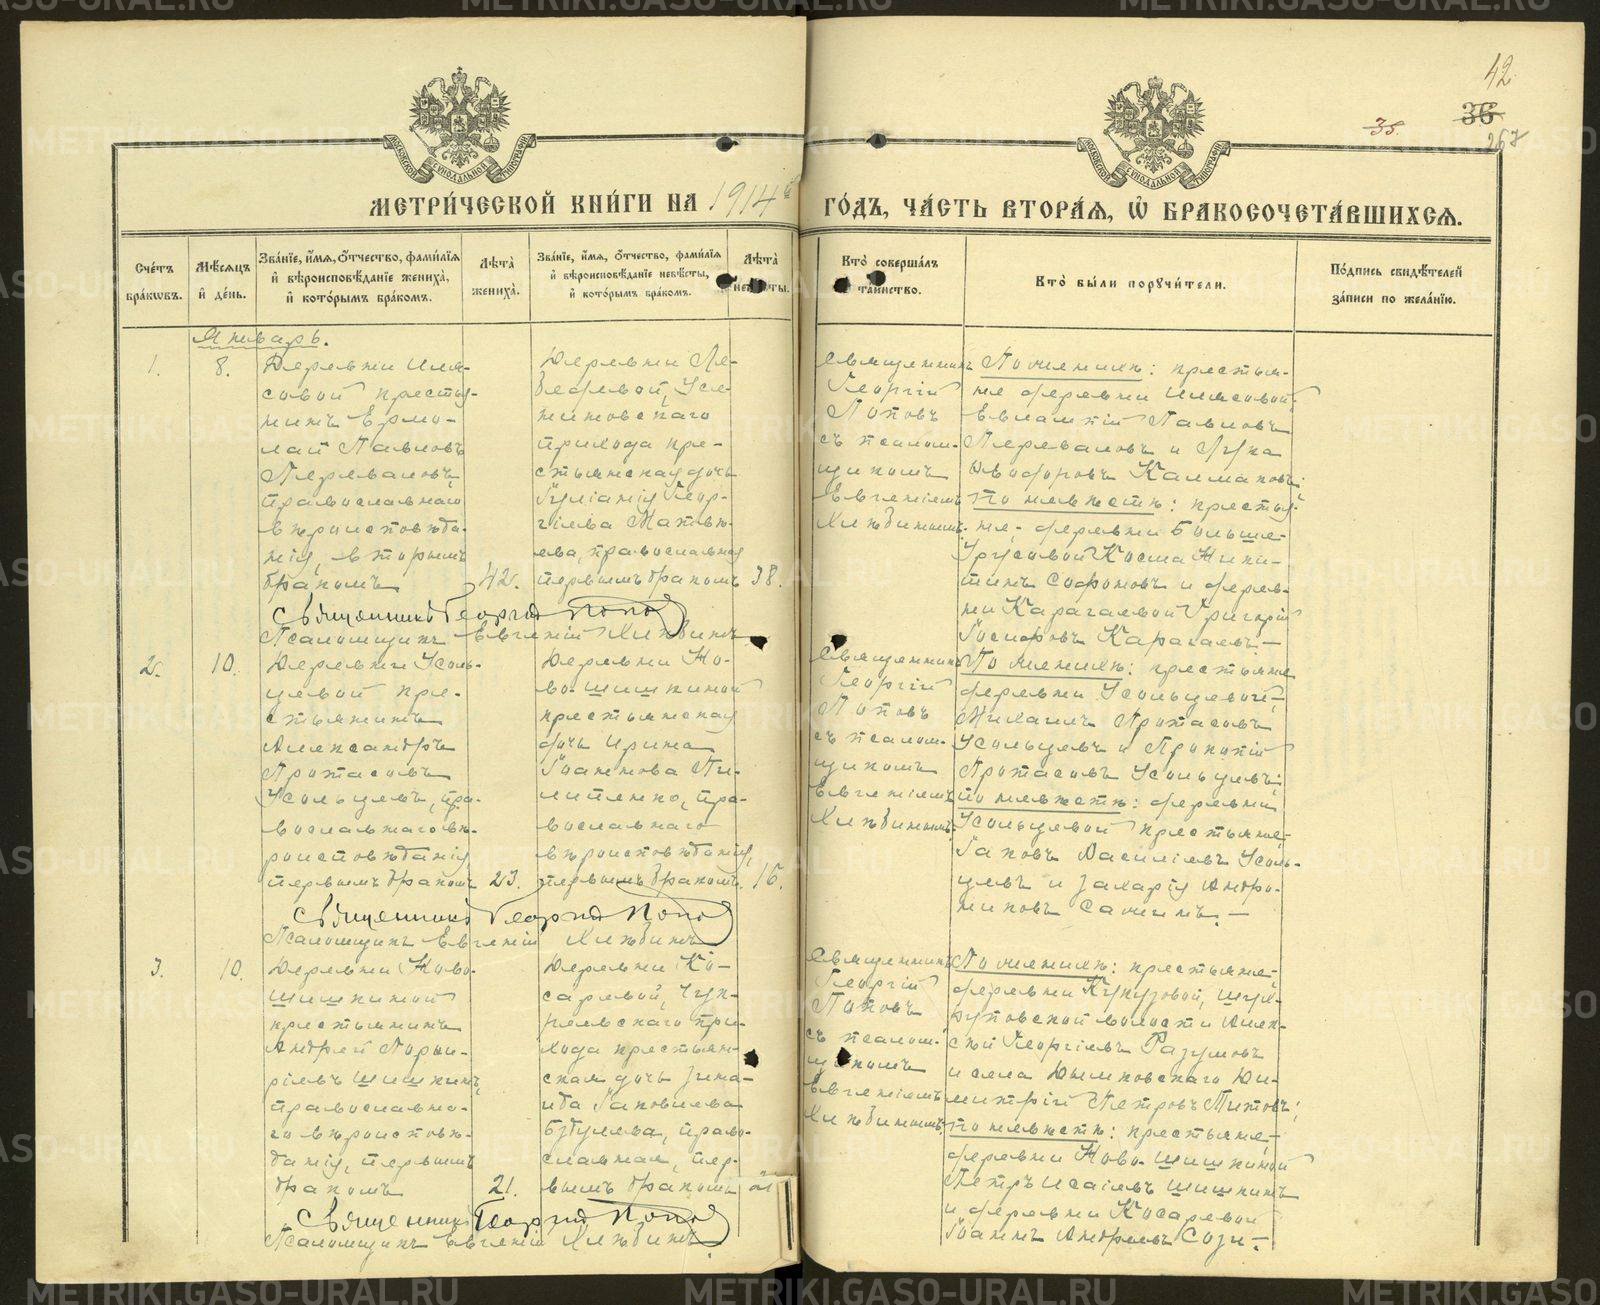 42
35.
36
267
МЕТРИ́ЧЕСКОЙ КНИ́ГИ НА 1914й
ГО́ДЪ, ЧА́СТЬ ВТОРА́Я, Ѡ҆ БРАКОСОЧЕТА́ВШИХСЯ.
Сче́тъ бра́кѡвъ.
Мѣ́сяцъ и҆ де́нь.
Зва́нїе, и҆́мя, ѻ҆́тчество, фами́лїя и҆ вѣроисповѣ́данїе жениха̀, и҆ кото́рымъ бра́комъ.
Лѣ́та жениха̀.
Зва́нїе, и҆́мя, ѻ҆́тчество, фами́лїя и҆ вѣроисповѣ́данїе невѣ́сты, и҆ кото́рымъ бра́комъ.
Лѣ́та невѣ́сты.
Кто̀ соверша́лъ та́инство.
Кто̀ бы́ли порꙋчи́тели.
По́дпись свидѣ́телей за́писи по жела́нїю.
Январь.
1.
8.
Деревни
совой крестья-
нинъ Ермо-
лай Павловъ
Переваловъ,
православнаго
вѣроисповѣда-
нія, вторымъ
бракомъ
42.
Деревни Ле-
бедевой, Усе-
ниновскаго
прихода кре-
стьянская дочь
Іуліанія Геор-
гіева Матвѣ-
ева, православная
первымъ бракомъ
38.
Священникъ
Георгій
Поповъ
съ псалом-
щикомъ
Евгеніемъ
Хлѣбинымъ.
По женихѣ: крестья-
не деревни
Евлампій Павловъ
Переваловъ и Лука
Ѳеодоровъ Калмаковъ;
по невѣстѣ: крестья-
не: деревни Больше-
Трусовой Косма Ники-
тинъ Софоновъ и дерев-
ни Карагаевой Григорій
Іосифовъ Карагаевъ. —
Священникъ Георгій Попов
Псаломщикъ Евгеній Хлѣбинъ
2.
10.
Деревни Усоль-
цевой кре-
стьянинъ
Александръ
Протасовъ
Усольцевъ, пра-
вославнаго вѣ-
роисповѣданія
первымъ бракомъ
23.
Деревни Но-
во-Шишкиной
крестьянская
дочь Ирина
Іоаннова Пи-
липенко, пра-
вославнаго
вѣроисповѣданія,
первымъ бракомъ.
16.
Священникъ
Георгій
Поповъ
съ псалом-
щикомъ
Евгеніемъ
Хлѣбинымъ.
По женихѣ: крестьяне
деревни Усольцевой:
Михаилъ Протасовъ
Усольцевъ и Прокопій
Протасовъ Усольцевъ;
по невѣстѣ: деревни
Усольцевой крестьяне:
Іаковъ Василіевъ Усоль-
цевъ и Захарія Андро-
никовъ Сажинъ. —
Священникъ Георгій Попов
Псаломщикъ Евгеній Хлѣбинъ
3.
10.
Деревни Ново-
Шишкиной
крестьянинъ
Андрей Порфи-
ріевъ Шишкинъ,
православна-
го вѣроисповѣ-
данія, первымъ
бракомъ
21.
Деревни Ко-
саревой,
прихода крестьян-
ская дочь Зина-
ида Іаковлева
Бабулева, право-
славная, пер-
вымъ бракомъ
21
Священникъ
Георгій
Поповъ
съ псалом-
щикомъ
Евгеніемъ
Хлѣбинымъ.
По женихѣ: крестьяне:
деревни Кукузовой,
волости Алек-
сѣй Георгіевъ Разумовъ
и села Дымковскаго Ди-
митрій Петровъ Титовъ;
по невѣстѣ: крестьяне:
деревни Ново-Шишкиной
Петръ Исаіевъ Шишкинъ
и деревни Косаревой
Іоаннъ Андреевъ Сози-
Священникъ Георгій Попов
Псаломщикъ Евгеній Хлѣбинъ.
METRIKI.GASO-URAL.RU